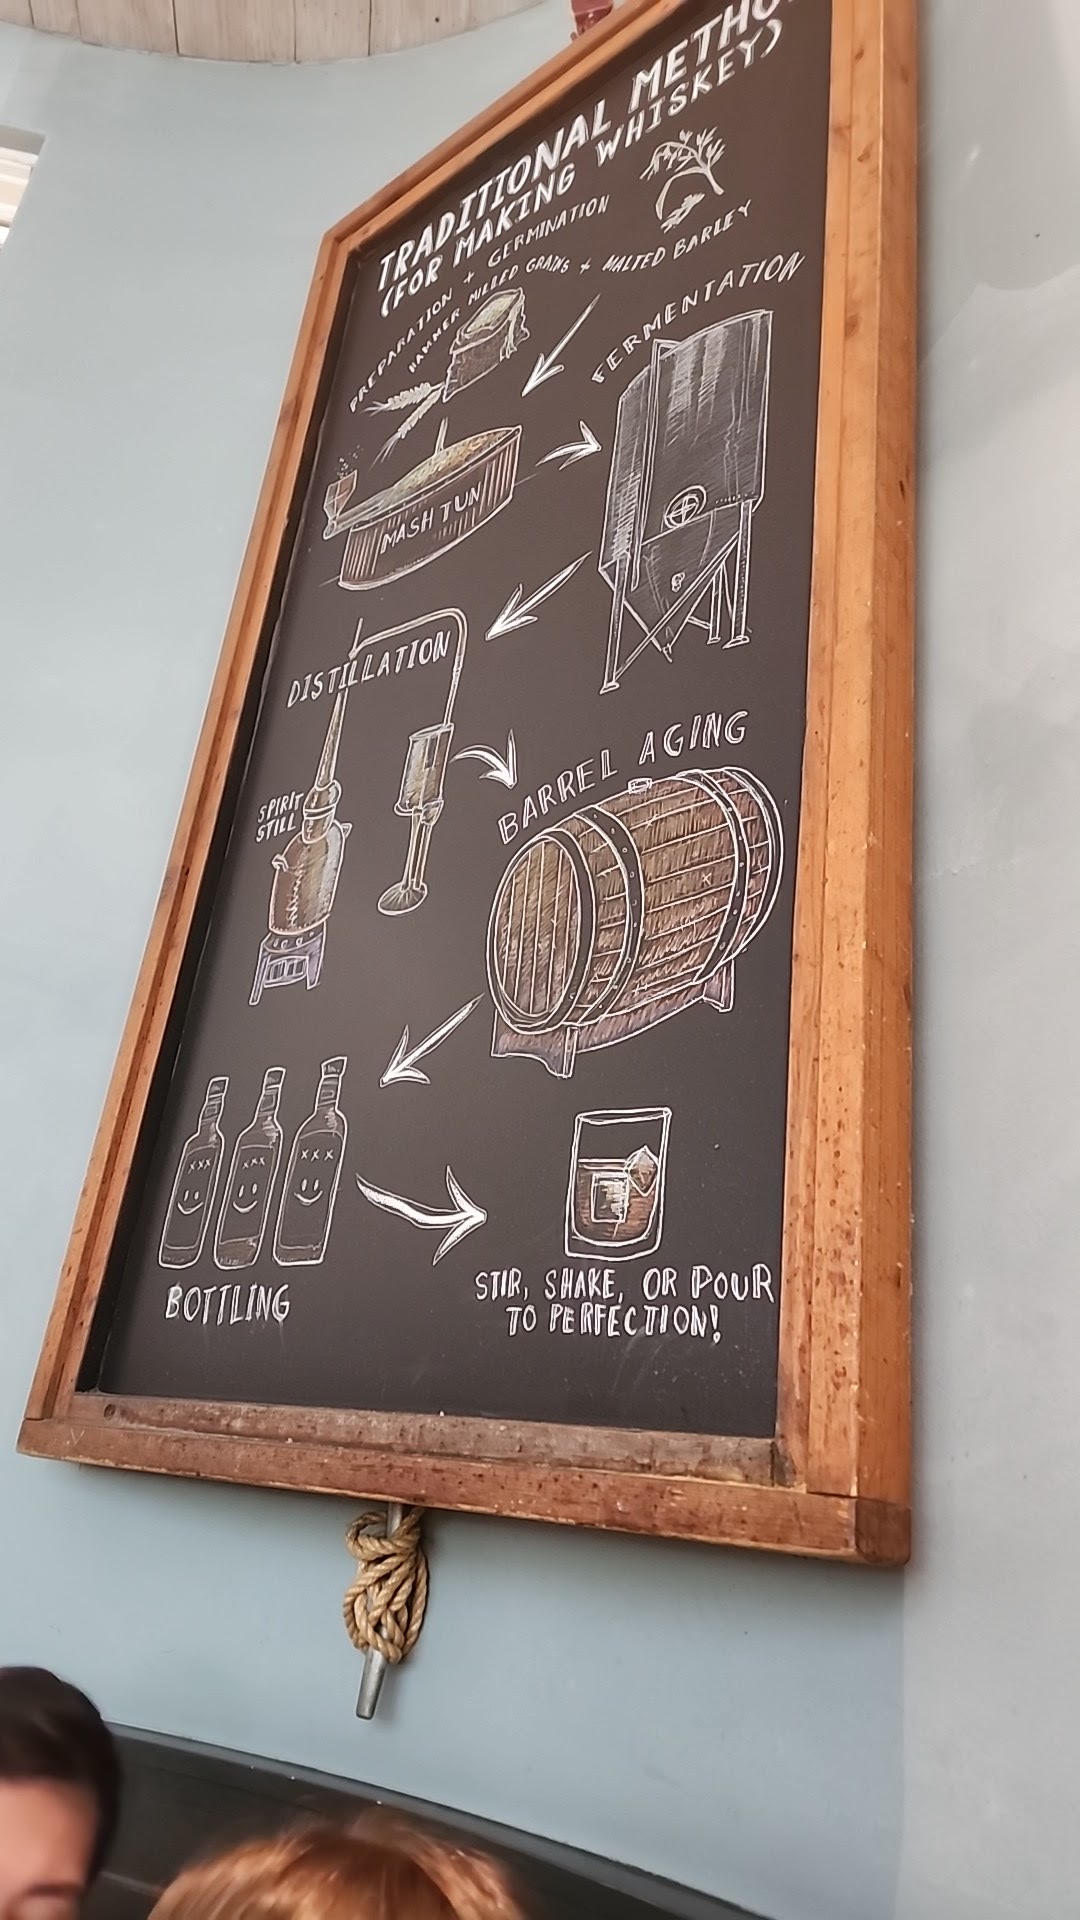 TRADITIONAL METHO
(FOR MAKING WHISKEY)
PREPARATION + GERMINATION
HAMMER MILLED GRAINS + MALTED BARLEY
FERMENTATION
MASH TUN
DISTILLATION
SPIRIT
STILL
BARREL AGING
XXX
XXX
XXX
BOTTLING
STIR, SHAKE, OR POUR
TO PERFECTION!